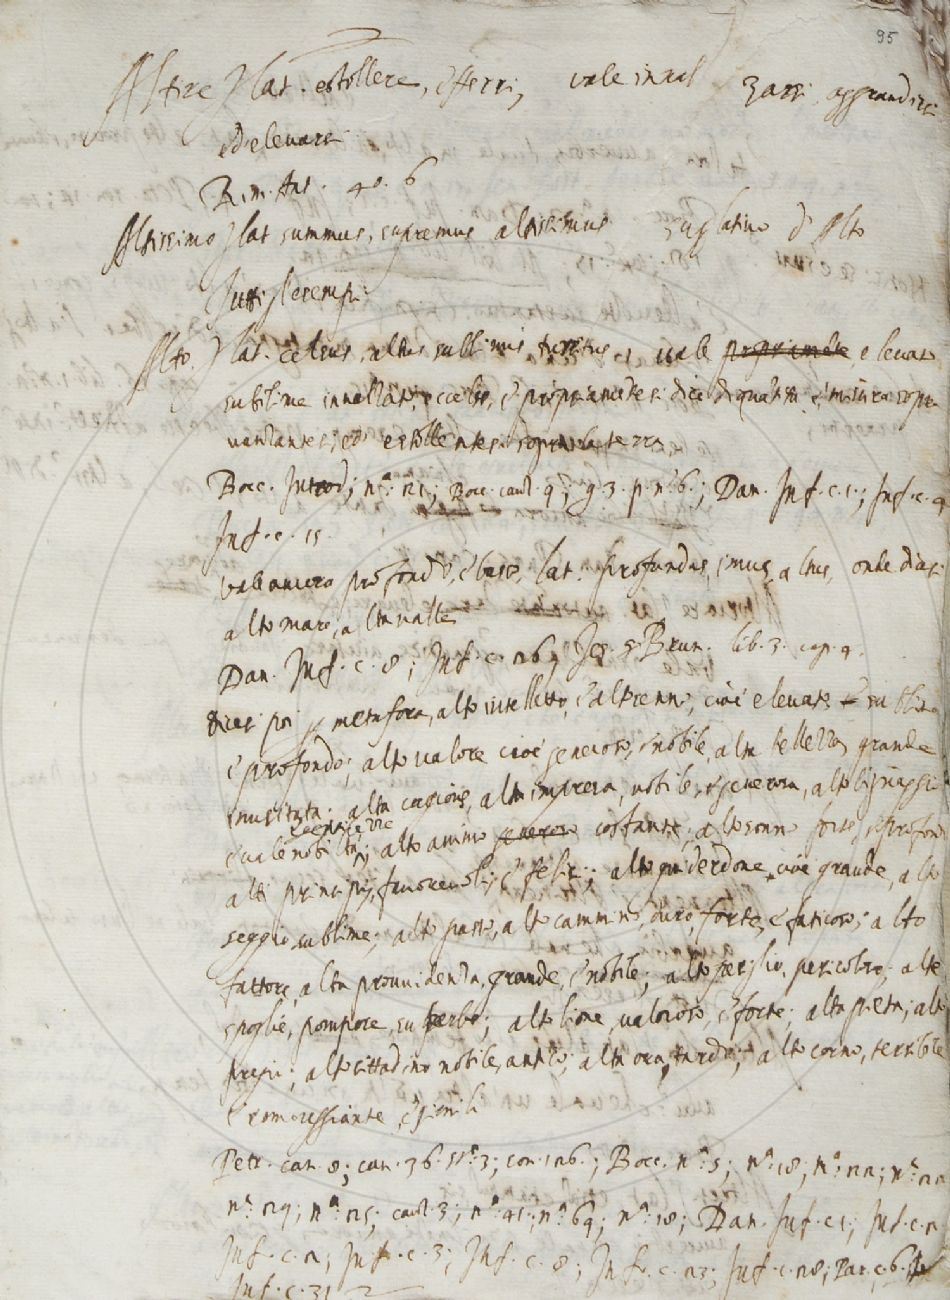 95
Altire Lat. estollere, efferri, vale innalzare, aggrandire
ed elevare
Rim. Ant. 40. 6
Altissimo Lat summus, supremus altissimus superlativo d'Alto
Tutti gl'esempi
Alto. Lat. celsus, altus sublimis, vale elevato
sublime innalzato, eccelso, e propriamente si dice di quantità e misura sopra
estollentesi sopra la terra
Bocc. Introd; nº. 121; Bocc. canz. 9; g. 3. p. nº. 6.; Dan. Inf. c. 1; Inf. c. 4
Inf. c. 15.
vale ancora profondo, e basso, lat. profundus, imus, altus, onde dices:
alto mare, alta valle
Dan. Inf. c. 8; Inf. c. 26; Tes. Brun. lib. 3. cap. 4.
dicesi poi p metafora, alto intelletto, e alto senno, cioè elevato e sublime
e profondo; alto valore cioè generoso, e nobile, alta bellezza grande
inusitata; alta cagione, alta impresa, nobile, e generosa, alto lignaggio
e vale nobiltà; alto animo costante; alto sonno forte, e profondo
alti principij, favorevoli, e felici; alto guiderdone, cioè grande, alto
seggio sublime; alto passo, alto cammino, duro, forte, e faticoso; alto
fattore, alta provvidenza, grande, e nobile; alto periglio, pericoloso; alte
spoglie, pompose, superbe; alto lione, valoroso, e forte; alta pieta; alti
pregi; alto cittadino nobile, antico; alta ora, tarda; alto corno, terribile
e rimbombante, e simili
Petr. can. 8; can. 36. st. 3; son. 126.; Bocc. nº. 5; nº. 18; nº. 22; nº. 22
nº. 29; nº. 25; canz. 3; nº. 41; nº. 69; nº. 18; Dan. Inf. c. 1; Inf. c. 2
Inf. c. 2; Inf. c. 3; Inf. c. 8; Inf. c. 23; Inf. c. 28; Par. c. 6.
Inf. c. 31